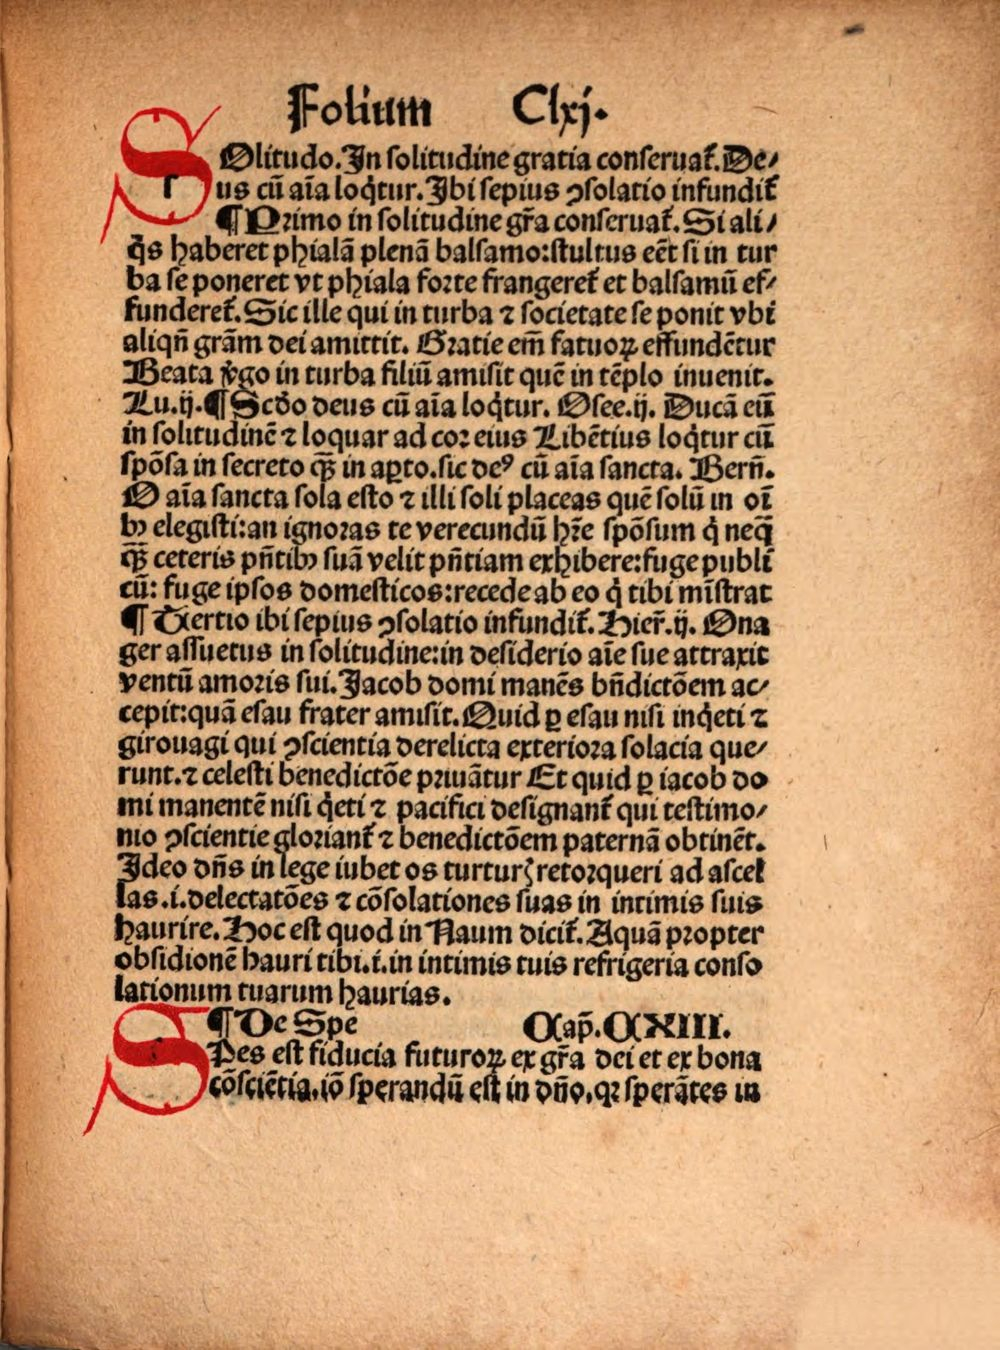 Folium Clxj.
SOlitudo. In solitudine gratia conseruat᷑. De⸗
us cū aīa loq̇tur. Ibi sepius ꝯsolatio infundit᷑
¶ Primo in solitudine gr̄a conseruat᷑. Si ali⸗
q̇s haberet phialā plenā balsamo: stultus eēt si in tur
ba se poneret vt phiala forte frangeret᷑ et balsamū ef⸗
funderet᷑. Sic ille qui in turba ⁊ societate se ponit vbi
aliqn̄ grām dei amittit. Gratie em̄ fatuoꝝ effundētur
Beata v̇go in turba filiū amisit quē in tēplo inuenit.
Lu.ij. ¶ Scḋo deus cū aīa loq̇tur. Osee.ij. Ducā eū
in solitudinē ⁊ loquar ad cor eius Libētius loq̇tur cū
spōsa in secreto qꝫ̄ in aꝑto. sic deꝰ cū aīa sancta. Bern̄.
O aīa sancta sola esto ⁊ illi soli placeas quē solū in oī
bꝫ elegisti: an ignoras te verecundū hr̄e spōsum q̇ neq̄
qꝫ̄ ceteris pn̄tibꝫ suā velit pn̄tiam exhibere: fuge publi
cū: fuge ipsos domesticos: recede ab eo q̇ tibi mīstrat
¶ Tertio ibi sepius ꝯsolatio infundit᷑. Hier̄.ij. Ona
ger assuetus in solitudine: in desiderio aīe sue attraxit
ventū amoris sui. Jacob domi manēs bn̄dictōem ac⸗
cepit: quā esau frater amisit. Quid ꝑ esau nisi inq̇eti ⁊
girouagi qui ꝯscientia derelicta exteriora solacia que⸗
runt. ⁊ celesti benedictōe priuātur Et quid ꝑ iacob do
mi manentē nisi q̇eti ⁊ pacifici designant᷑ qui testimo⸗
nio ꝯscientie gloriant᷑ ⁊ benedictōem paternā obtinēt.
Ideo dn̄s in lege iubet os turturꝭ retorqueri ad ascel
las .i. delectatōes ⁊ cōsolationes suas in intimis suis
haurire. Hoc est quod in Naum dicit᷑. Aquā propter
obsidionē hauri tibi .i. in intimis tuis refrigeria conso
lationum tuarum haurias.
¶ De Spe Cap̄. CXIII.
SPes est fiducia futuroꝝ ex gr̄a dei et ex bona
cōsciētia. iō sperandū est in dn̄o, qꝛ sperātes in